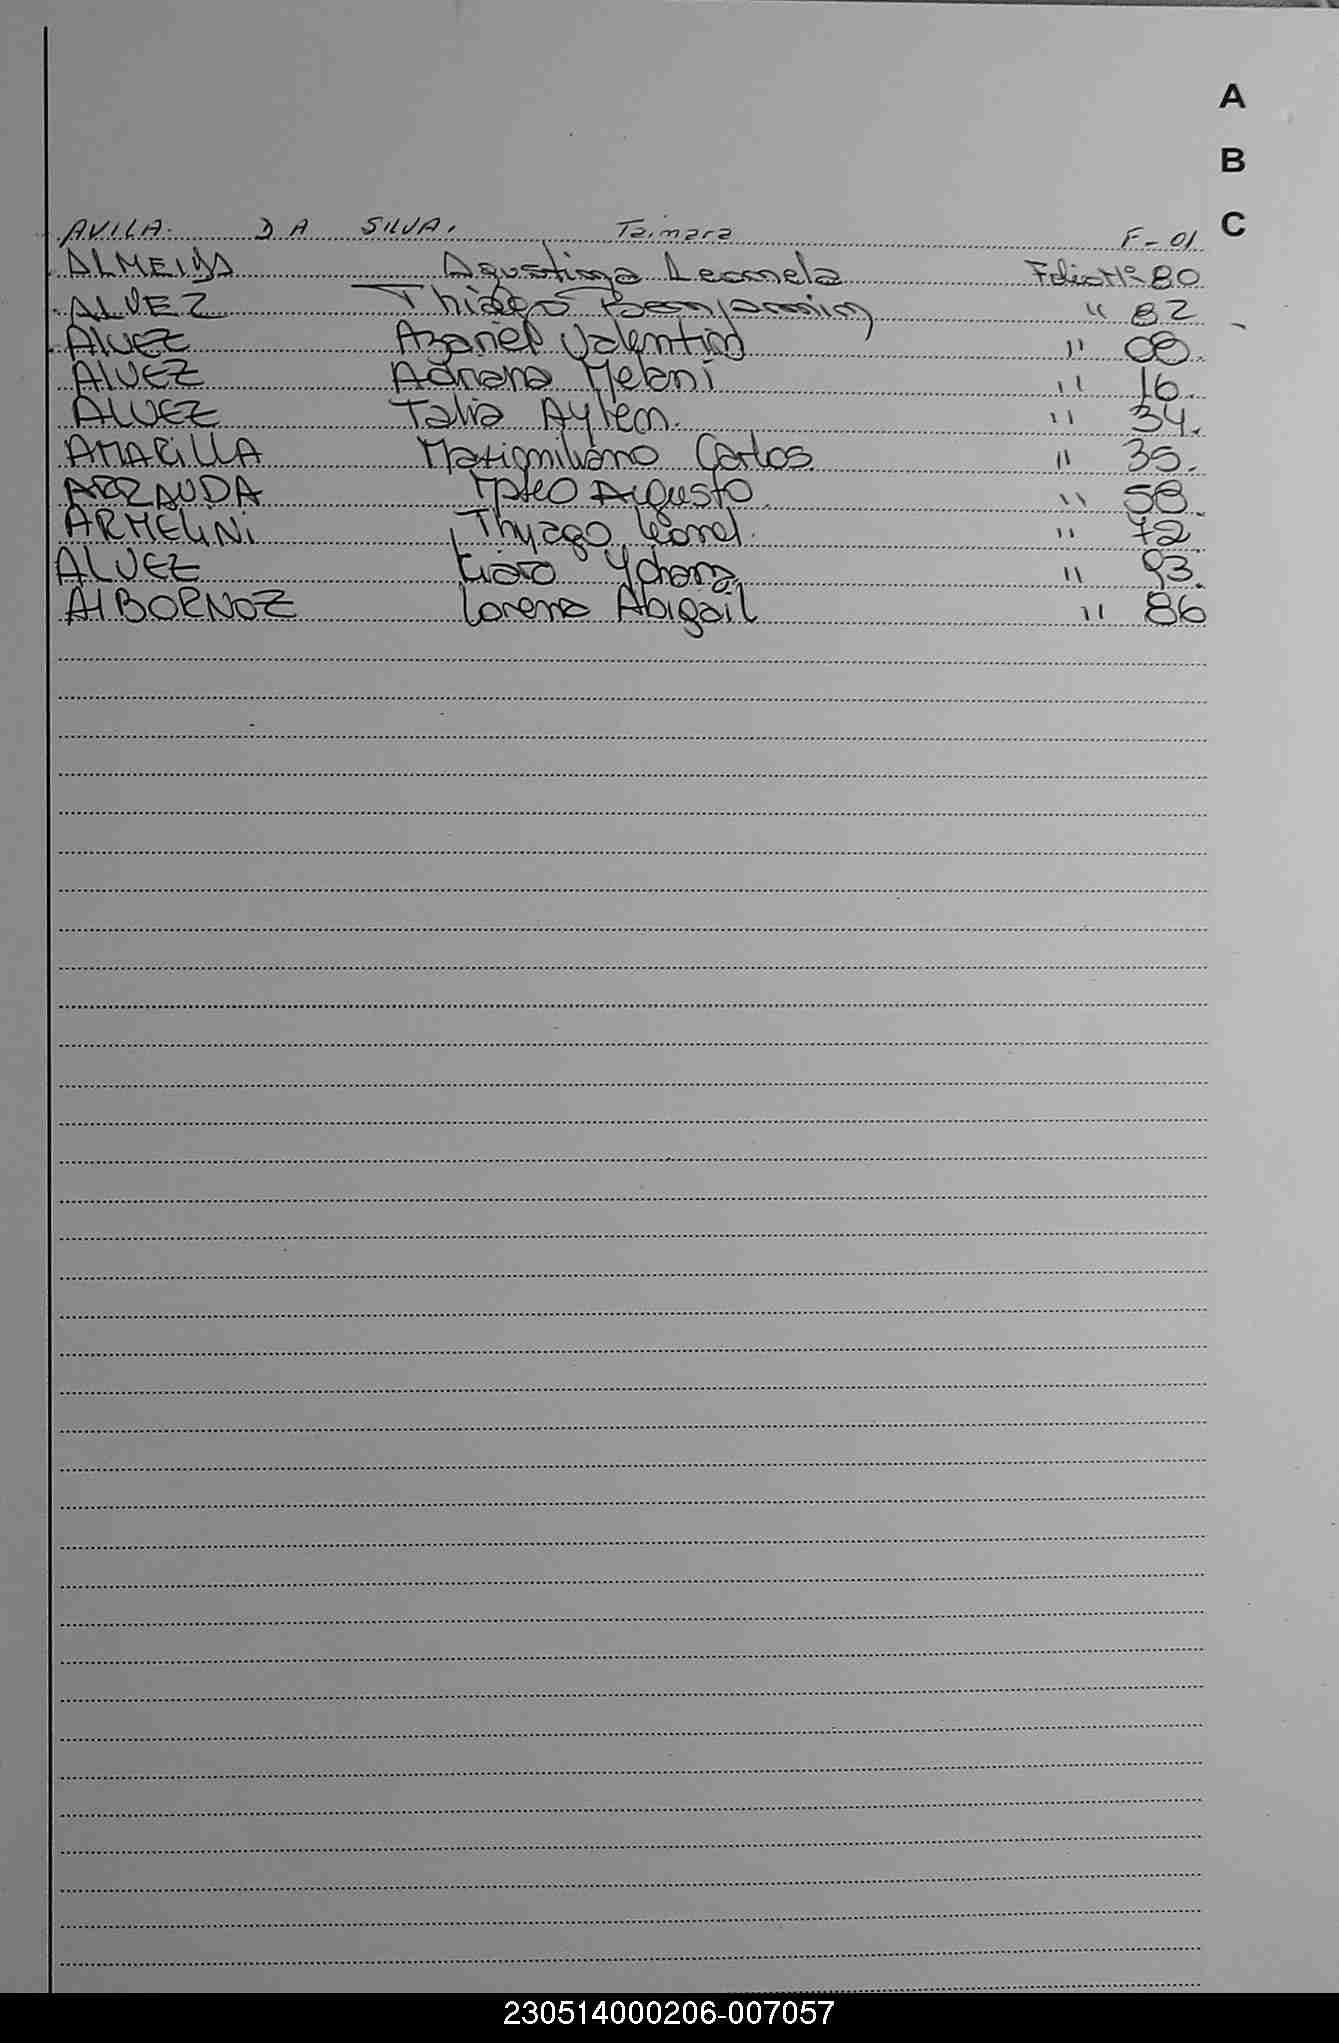 A
B
C
AVILA. DA SILVA. Taimara F-01
ALMEIDA Agustina Leonela Folio Nº 80
ALVEZ Thiago Benjamin " 82
AlVEZ Azariel Valentin " 08.
AlVEZ Adriana Melani " 16.
ALVEZ Talia Aylen. " 34.
AMARILLA Maximiliano Carlos " 35.
ARRAUDA Mateo Augusto " 58.
ARMELINI Thyago Leonel. " 72
ALVEZ " 93.
AlBORNOZ Lorena Abigail " 86
230514000206-007057